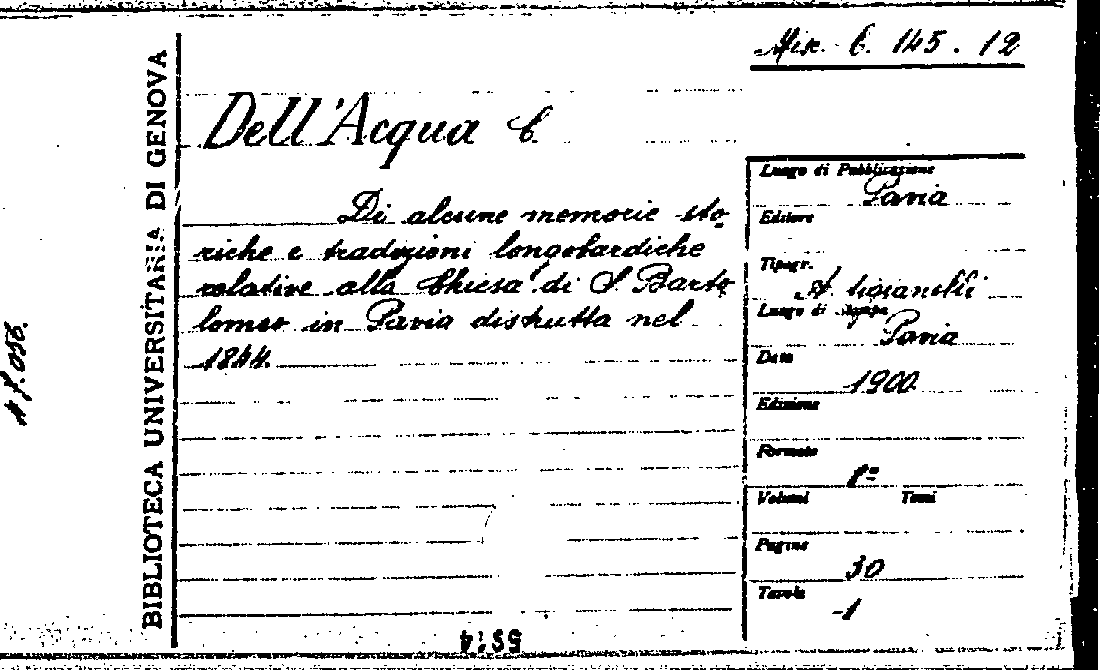 BIBLIOTECA UNIVERSITARIA DI GENOVA
Misc. C. 145. 12
Dell'Acqua C.
Di alcune memorie sto-
riche e tradizioni longobardiche
relative alla Chiesa di S. Barto
lomeo in Pavia distrutta nel
1844.
Luogo di Pubblicazione
Pavia
Editore
Tipogr.
Luogo di Stampa
Pavia
Data
1900
Edizione
Formato
8º
Volumi Tomi
Pagine
30
Tavole
1